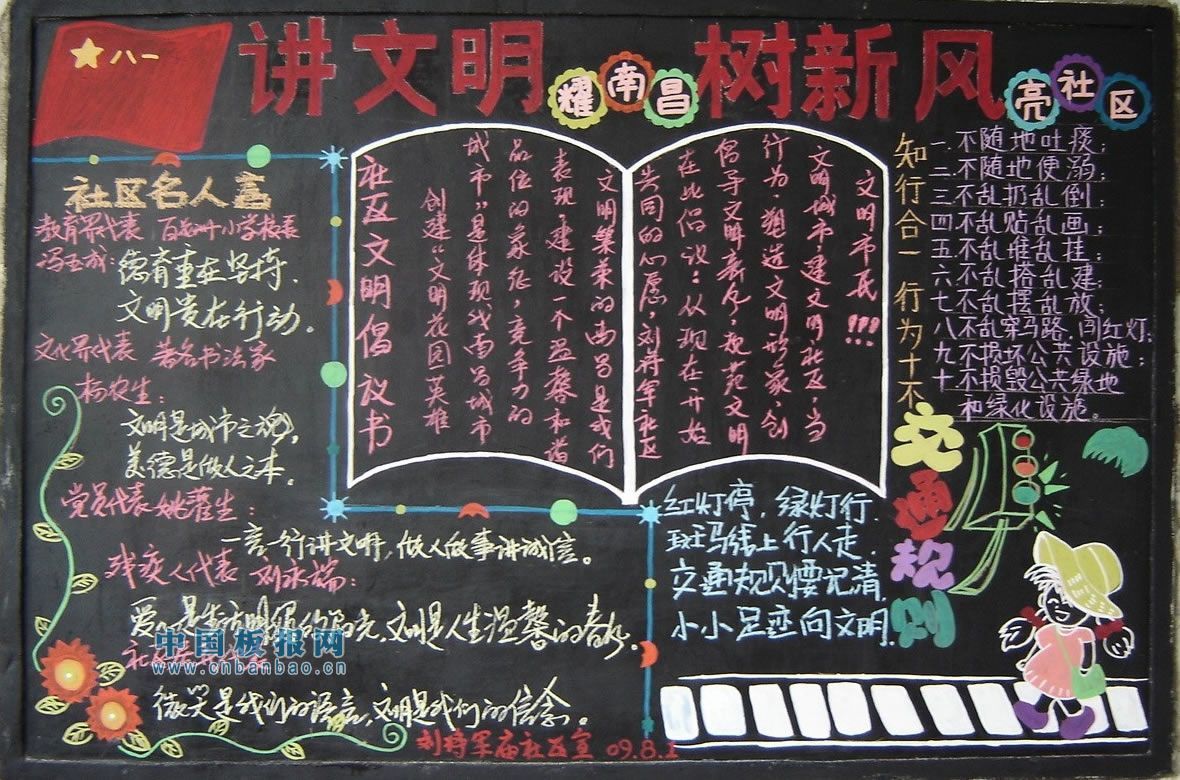 八一
讲文明 耀南昌 树新风 亮社区
社区名人言
教育界代表 百花洲小学校长
冯玉成:德育重在坚持,
文明贵在行动。
文化界代表 著名书法家
杨农生:
文明是城市之魂,
美德是做人之本。
党员代表 姚
生:
一言一行讲文明,做人做事讲诚信。
残疾人代表 刘永瑞:
爱
是
文明是人生温馨的春
。
微笑是我们的语言,文明是我们的信念。
文明市民!!!
文明城市,建文明社区,当
行为,塑造文明形象,创
倡导文明新风,规范文明
在此倡议:从现在开始
共同的心愿,刘将军社区
文明集束的南昌是我们
表现,建设一个温馨和谐
品位的象征,竞争力的
城市”是体现我南昌城市
创建“文明花园英雄
社区文明倡议书
知行合一 行为十不
一.不随地吐痰;
二.不随地便溺;
三.不乱扔乱倒;
四.不乱贴乱画;
五.不乱堆乱挂;
六.不乱搭乱建;
七.不乱摆乱放;
八.不乱穿马路,闯红灯;
九.不损坏公共设施;
十.不损毁公共绿地
和绿化设施。
交通规则
红灯停,绿灯行.
斑马线上行人走.
交通规则要记清,
小小足迹向文明.
中国板报网
www.cnbanbao.cn
刘将军庙社区宣 09.8.1